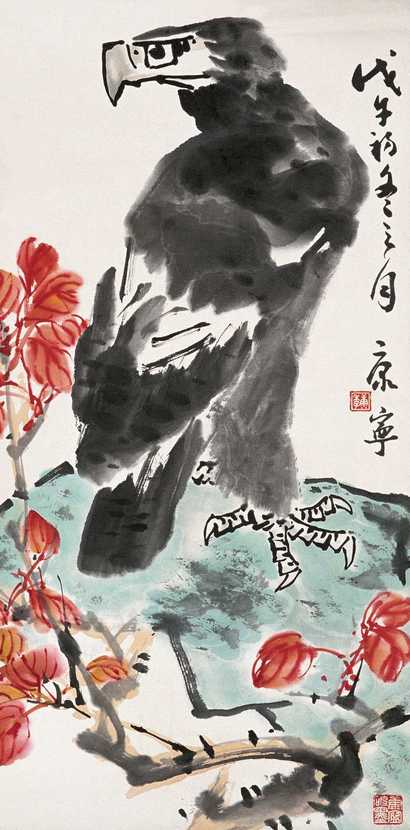 戊午初冬之月
康寧